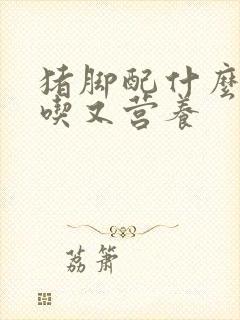 猪脚配什麽
喫又营养
荔箫